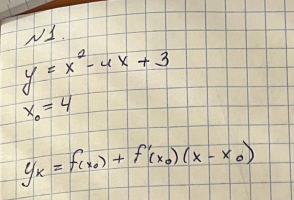 №1.
y = x² - 4x + 3
x₀ = 4
yₖ = f(x₀) + f'(x₀)(x - x₀)